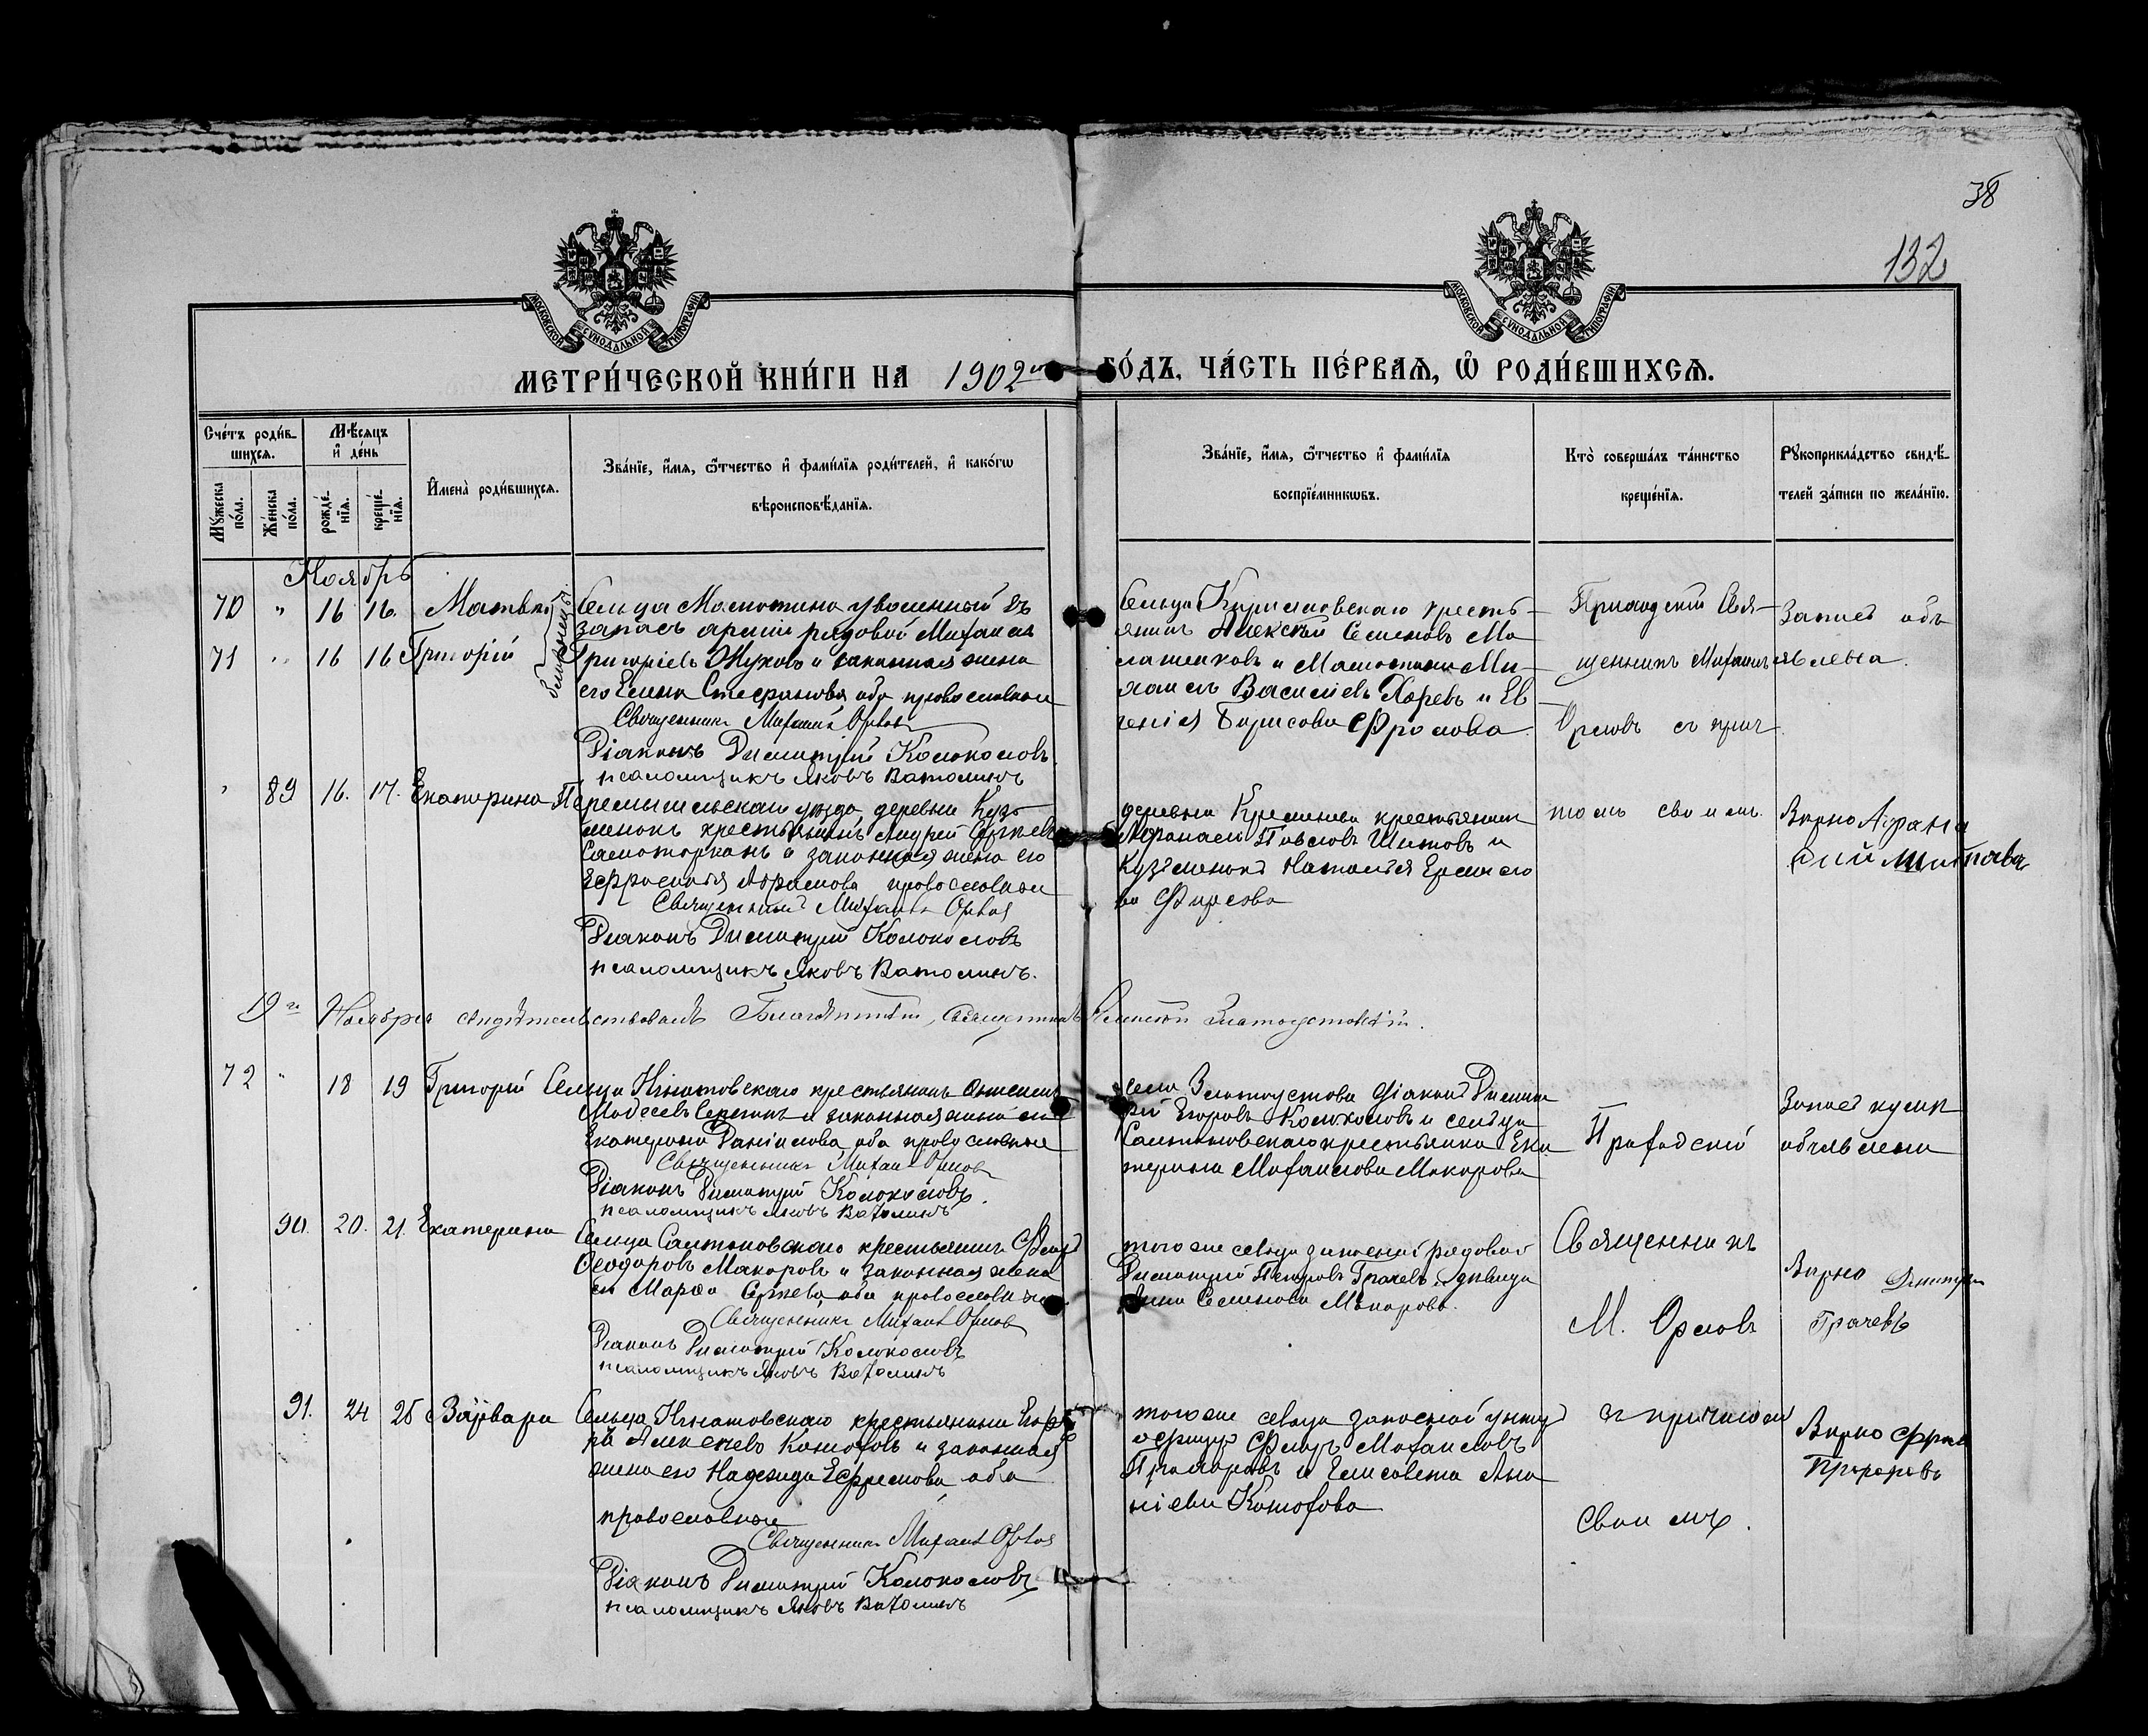 38
132
МОСКОВСКОЙ СУНОДАЛЬНОЙ ТИПОГРАФІИ
МОСКОВСКОЙ СУНОДАЛЬНОЙ ТИПОГРАФІИ
МЕТРИ́ЧЕСКОЙ КНИ́ГИ НА 1902й ГО́ДЪ, ЧА́СТЬ ПЕ́РВАѦ, Ѡ҆ РОДИ́ВШИХСѦ.
Сче́тъ роди́в-
шихсѧ.
Мѣ́сѧцъ
и҆ де́нь
Мꙋ́жеска по́ла.
Же́нска по́ла.
рожде́-
нїѧ.
креще́-
нїѧ.
И҆мена̀ роди́вшихсѧ.
Зва́нїе, и҆́мѧ, ѻ҆́тчество и҆ фами́лїѧ роди́телей, и҆ како́гѡ
вѣроисповѣ́данїѧ.
Зва́нїе, и҆́мѧ, ѻ҆́тчество и҆ фами́лїѧ
воспрїе́мникѡвъ.
Кто̀ соверша́лъ та́инство
креще́нїѧ.
Рꙋкоприкла́дство свидѣ́-
телей за́писи по жела́нїю.
Ноябрь
70 " 16 16. Матвей
71 " 16 16 Григорій
близнецы
Сельца Мамотина уволенный въ
запасъ арміи рядовой Михаилъ
Григоріевъ Жуковъ и законная жена
его Елена Стефанова, оба православные
Священникъ Михаилъ Орловъ
Діаконъ Димитрій Колоколовъ
псаломщикъ Яковъ Ватолинъ
крестья-
янинъ Алексѣй Семеновъ
и Мамотина Ми-
хаилъ Василіевъ Харевъ и Ев
генія Борисова Фролова.
Приходскій Свя-
щенникъ Михаилъ
Орловъ съ прич
Запись объ
явлена.
89 16. 17. Екатерина
Перемышльскаго уѣзда, деревни Кузь
менокъ крестьянинъ Андрей Сергѣевъ
и законная жена его
Евфросинія Абрамова православные
Священникъ Михаилъ Орловъ
Діаконъ Димитрій Колоколовъ
псаломщикъ Яковъ Ватолинъ.
деревни крестьянинъ
Афанасій Павловъ Шитовъ и
Кузьменокъ Наталія
ва Фирсова
томъ своимъ.
Вѣрно Афана
сій Шитовъ
19го Ноября свидѣтельствовалъ Благочинный, Священникъ Златоустовскій.
72 " 18 19 Григорій
Сельца Игнатовскаго крестьянинъ
Моѵсеевъ Сергинъ и законная жена его
Екатерина Даніилова, оба православные
Священникъ Михаилъ Орловъ
Діаконъ Димитрій Колоколовъ.
псаломщикъ Яковъ Ватолинъ
села Златоустова діаконъ Димит
рій Егоровъ Колоколовъ и сельца
Салтановскаго крестьянка Ека
терина Михаилова Макарова
Приходскій
Запись
объявлена
90. 20. 21. Екатерина
Сельца Салтановскаго крестьянинъ Флоръ
Ѳеодоровъ Макаровъ и законная жена
его Марѳа Сергѣева, оба православные
Священникъ Михаилъ Орловъ
Діаконъ Димитрій Колоколовъ
псаломщикъ Яковъ Ватолинъ
тогоже сельца запасный рядовой
Димитрій Петровъ Грачевъ и дѣвица
Анна Семенова Макарова.
Священникъ
М. Орловъ
Вѣрно Дмитрій
Грачевъ
91. 24 25 Варвара
Сельца Игнатовскаго крестьянинъ
Алексѣевъ и законная
жена его Надежда Ефремова оба
православные
Священникъ Михаилъ Орловъ
Діаконъ Димитрій Колоколовъ
псаломщикъ Яковъ Ватолинъ
тогоже сельца запасной унтеръ
офицеръ Флоръ Михаиловъ
Прохоровъ и Елисавета Ана
ніева
съ причтомъ
своимъ.
Вѣрно Фролъ
Прохоровъ